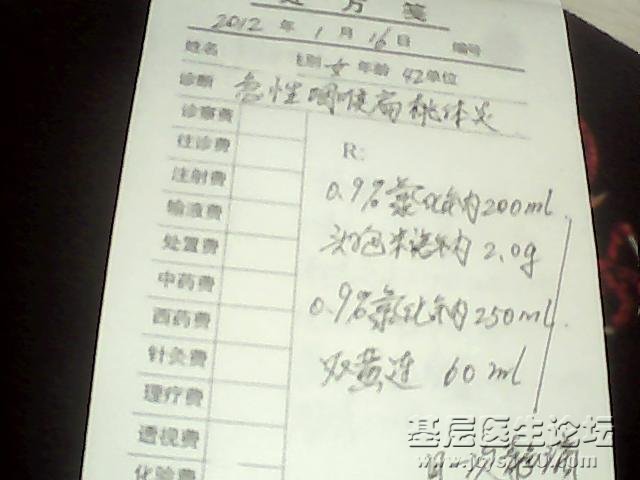 处方笺
2012 年 1 月 16 日 编号
姓名 性别 女 年龄 42 单位
诊断 急性咽喉扁桃体炎
诊察费
往诊费
注射费
输液费
处置费
中药费
西药费
针灸费
理疗费
透视费
化验费
R:
0.9%氯化钠 200ml
头孢米诺钠 2.0g
0.9%氯化钠 250ml
双黄连 60ml
日一次静滴
基层医生论坛